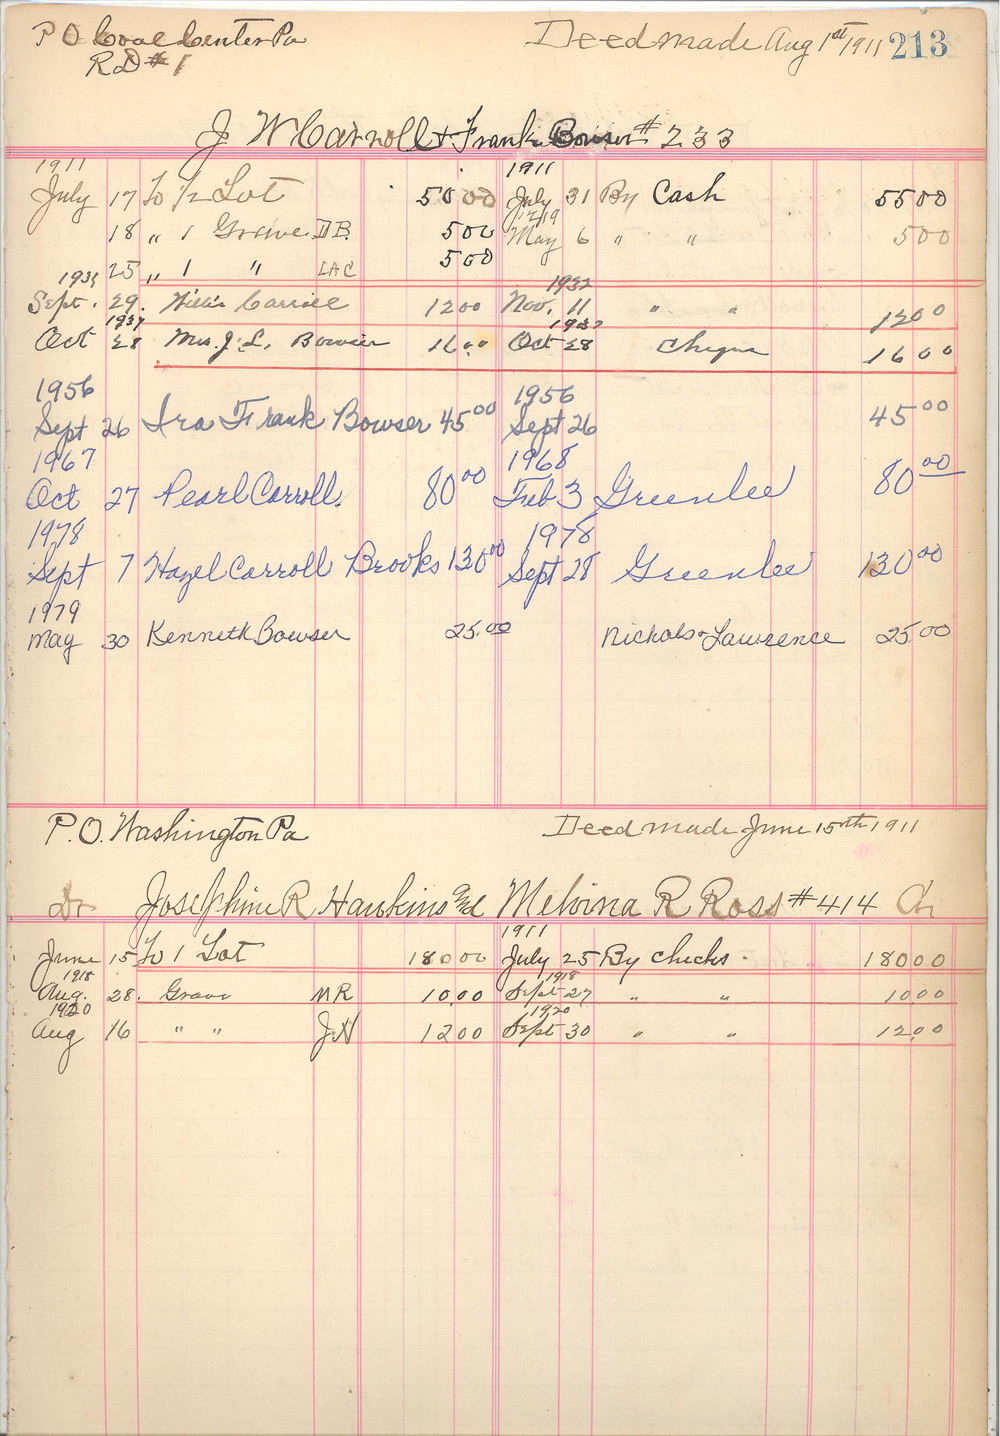 P O Coal Center Pa Deed made Aug 1st 1911 213
RD #1
J W Carroll & Frank Bowser # 233
1911 1911
July 17 To 1/2 Lot 50 00 July 31 By Cash 55 00
18 „ 1 Grave D B. 5 00 1919 May 6 " " 5 00
25 „ 1 " I A C 5 00
Sept. 29. Willis Carroll 12 00 1932 Nov. 11 " " 12 00
1937 1937
Oct 28 Mrs. J. L. Bowser 16 00 Oct 28 Cheque 16 00
1956 1956
Sept 26 Ira Frank Bowser 45 00 Sept 26 45 00
1967 1968
Oct 27 Pearl Carroll. 80 00 Feb 3 Greenlee 80 00
1978 1978
Sept 7 Hazel Carroll Brooks 130 00 Sept 28 Greenlee 130 00
1979
May 30 Kenneth Bowser 25.00 Nichols & Lawrence 25 00
P.O. Washington Pa Deed made June 15th 1911
Dr Josephine R Hawkins and Melvina R Ross # 414 Cr
1911
June 15 To 1 Lot 180 00 July 25 By checks . 180 00
1918 1918
Aug. 28. Grave M R 10.00 Sept 27 " " 10 00
1920 1920
Aug 16 " " J H 12 00 Sept 30 " " 12 00